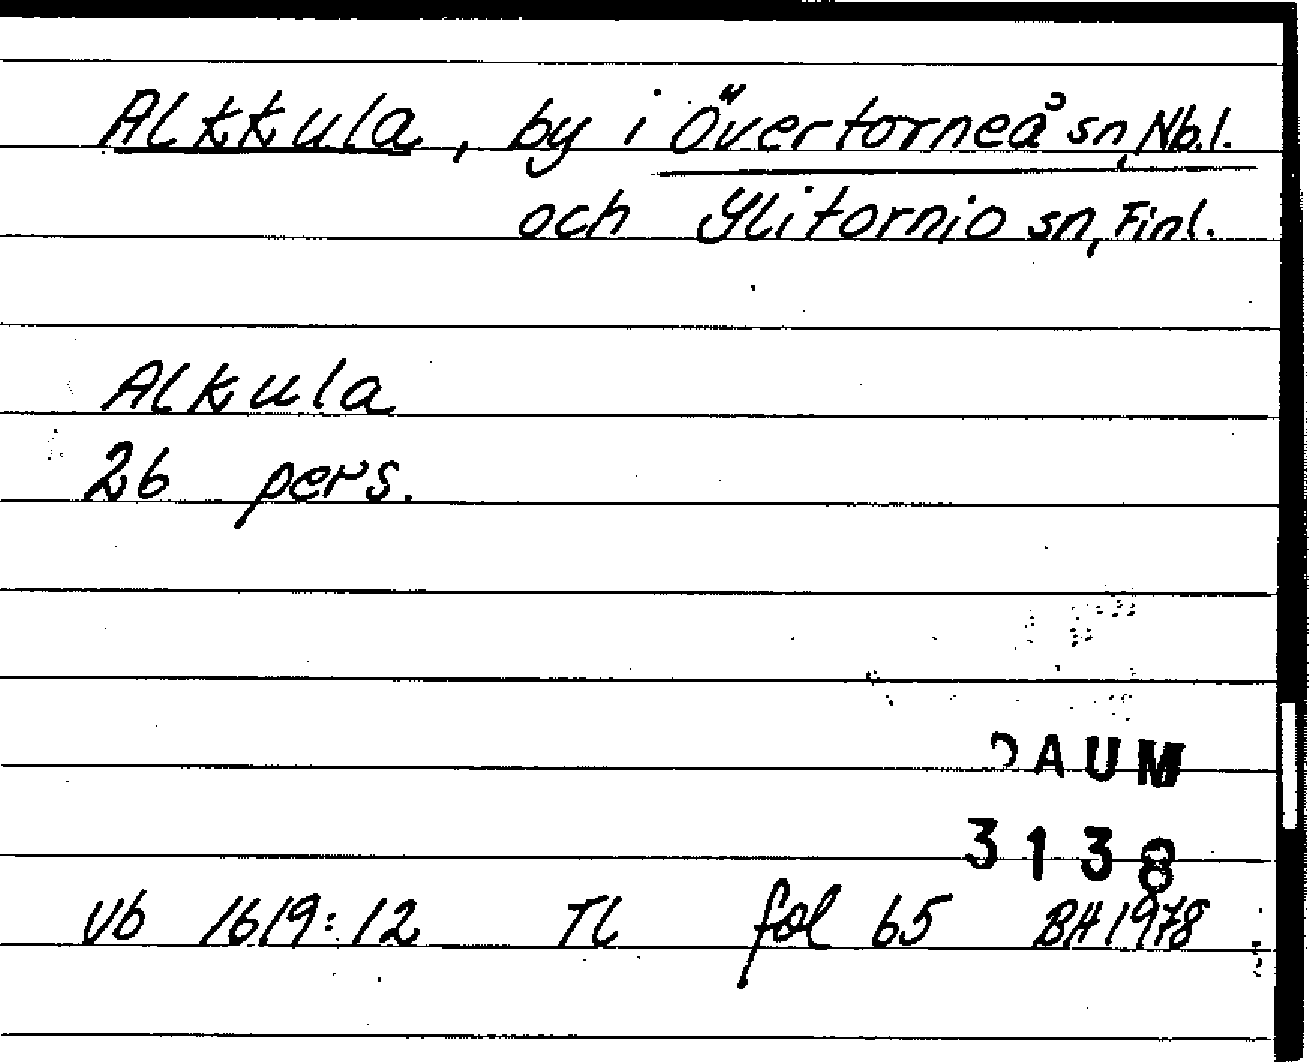 Alkkula, by i Övertorneå sn, Nb.l.
och Ylitornio sn, Finl.
Alkula
26 pers.
DAUM
3138
Vb 1619:12 TL fol 65 BH 1978